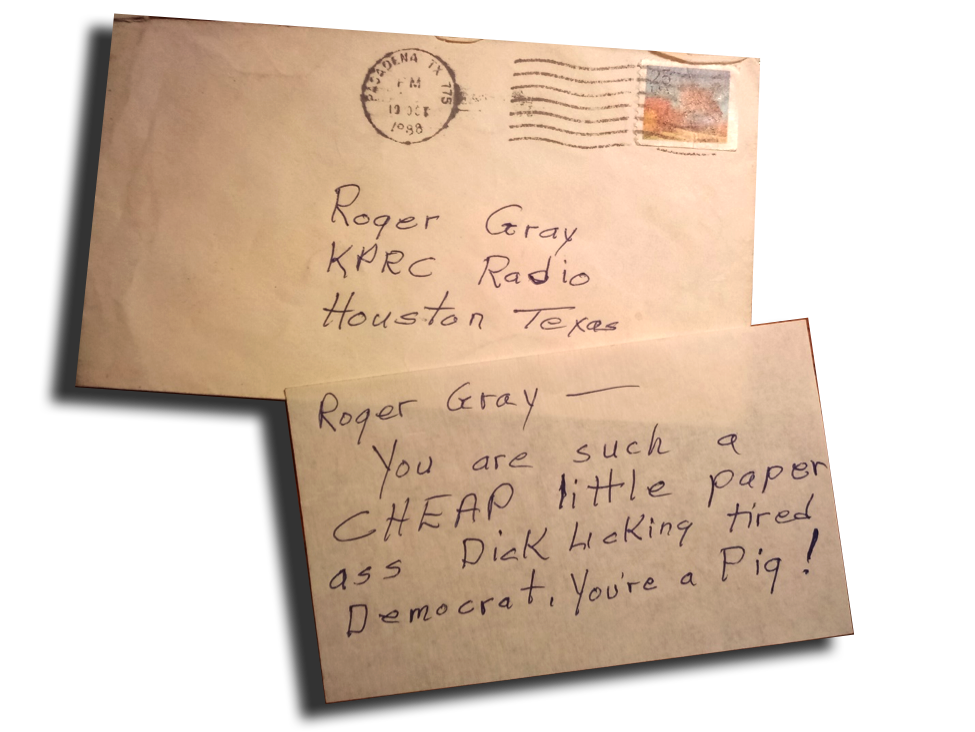 PASADENA TX 775
PM
19 OCT
1988
25
Roger Gray
KPRC Radio
Houston Texas
Roger Gray —
You are such a
CHEAP little paper
ass Dick Licking tired
Democrat. You're a Pig!